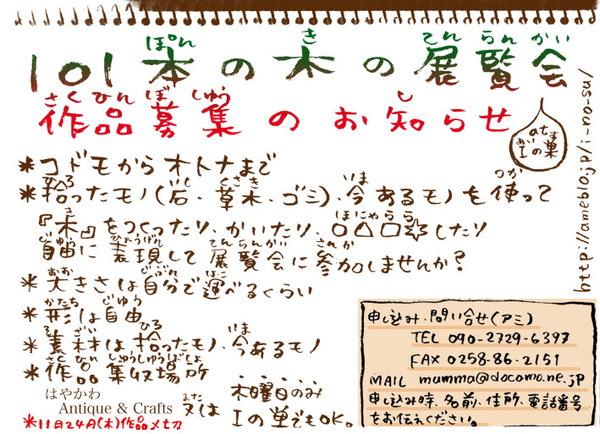 101本の木の展覧会
ぽん き てんらんかい
作品募集のお知らせ
さくひんぼしゅう し
atすあいIの巣
http://ameblo.jp/i-no-su/
*コドモからオトナまで
*拾ったモノ(石・草木・ゴミ)・今あるモノを使って
ひろ いし くさき いま つか
『木』をつくったり、かいたり、○△□☆したり
き ほにゃらら
自由に表現して展覧会に参加しませんか?
じゆう ひょうげん てんらんかい さんか
*大きさは自分で運べるくらい
おお じぶん はこ
*形は自由
かたち じゆう
*素材は拾ったモノ、今あるモノ
そざい ひろ いま
*作品集収場所
さくひんしゅうしゅうばしょ
はやかわ
Antique & Crafts
又は
また
木曜日のみ
Iの巣でもOK。
*11月24日(木)作品〆切
申し込み・問い合せ(アミ)
TEL 090-2729-6397
FAX 0258-86-2151
MAIL mumma@docomo.ne.jp
申し込み時、名前、住所、電話番号
をお伝えください。